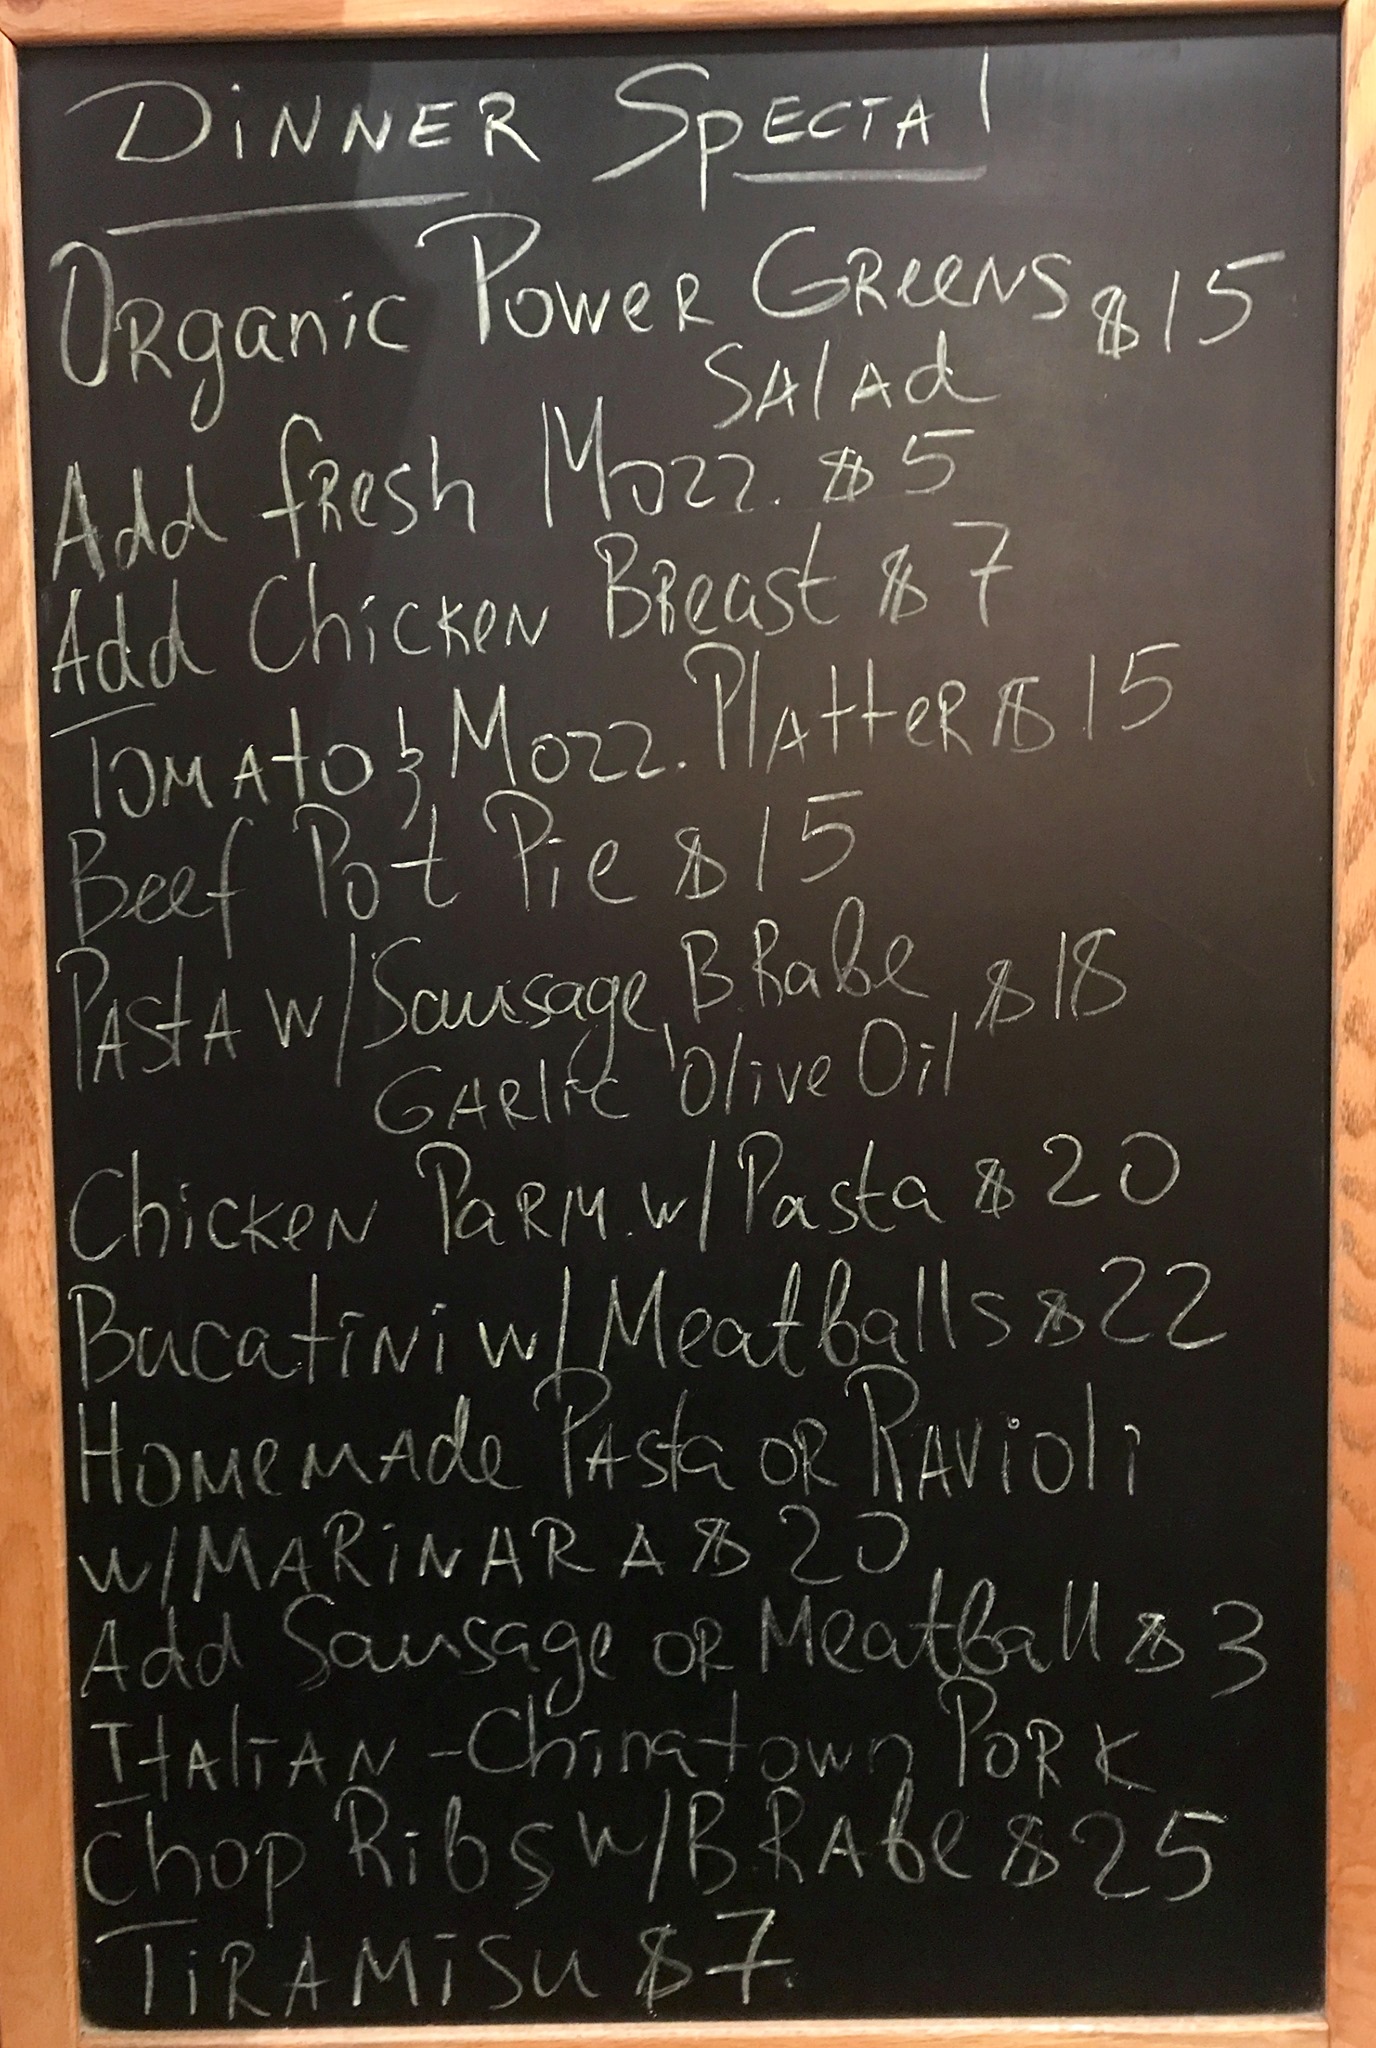 DINNER SPECIAL
ORganic POWER GREENS $15
SALAD
Add fresh Mozz. $5
Add Chicken Breast $7
TOMATO & Mozz. PLATTER $15
Beef Pot Pie $15
PASTA w/ Sausage, B.Rabe $18
GARLIC Olive Oil
Chicken PARM. w/ Pasta $20
Bucatini w/ Meatballs $22
HOMEMADE PASTA OR RAVIOLI
w/ MARINARA $20
Add Sausage OR Meatball $3
ITALIAN-Chinatown PORK
Chop Ribs w/ B.RAbe $25
TIRAMISU $7